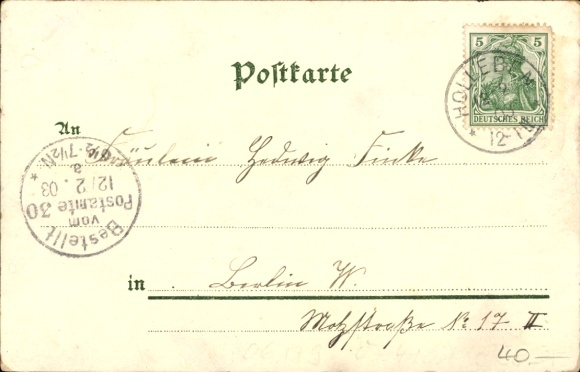 5 5
DEUTSCHES REICH
HOLLEBEN
12-1N
Postkarte
An Fräulein Hedwig Finke
Bestellt
vom
Postamte 30
12/2.03
a.
6½-7½N.
in Berlin W.
Motzstraße No 17 II
40.—